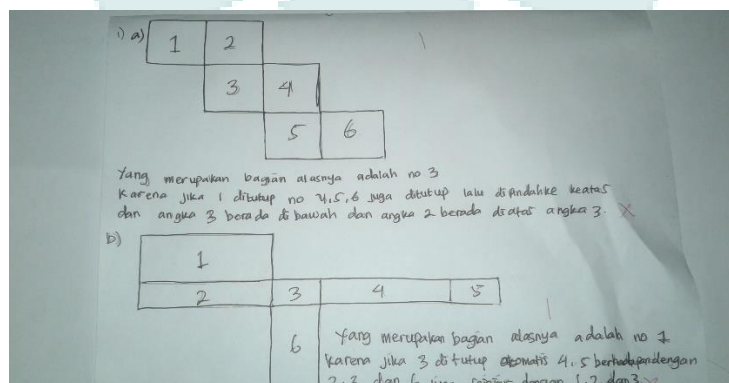 1) a) 1 2
3 4
5 6
Yang merupakan bagian alasnya adalah no 3
Karena jika 1 ditutup no 4,5,6 juga ditutup lalu dipindahke keatas
dan angka 3 berada di bawah dan angka 2 berada diatas angka 3. X
b) 1
2 3 4 5
6
Yang merupakan bagian alasnya adalah no 1
Karena jika 3 ditutup otomatis 4,5 berhadapan dengan
2,3 dan 6 dengan 1,2 dan 3